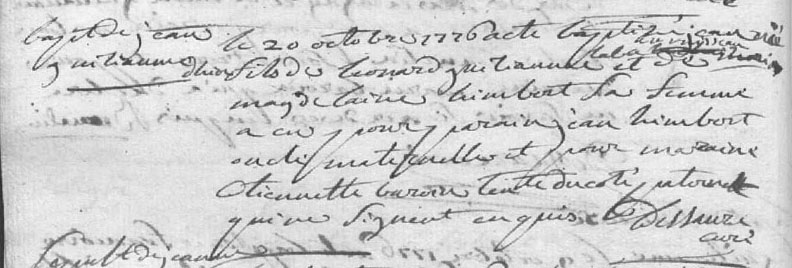 bapt de jean
guilianne
le 20 octobre 1776 a ete baptisé jean né
d'hier fils de leonard guilianne et de
magdelaine himbert sa femme
a eu pour parain jean himbert
oncle maternelle et pour maraine
etiennette baroin tente du coté paternel
qui ne signent enquis Dessaure
curé